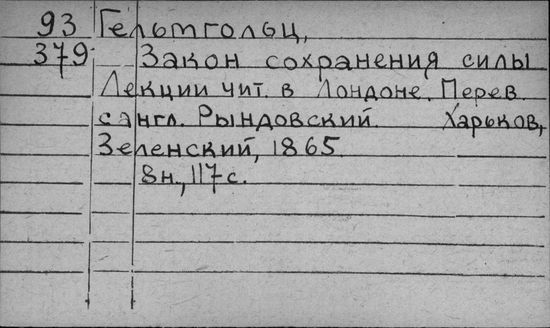 93 Гельмгольц,
379 Закон сохранения силы
Лекции чит. в Лондоне. Перев.
с англ. Рындовский Харьков,
Зеленский, 1865.
8н., 117 с.